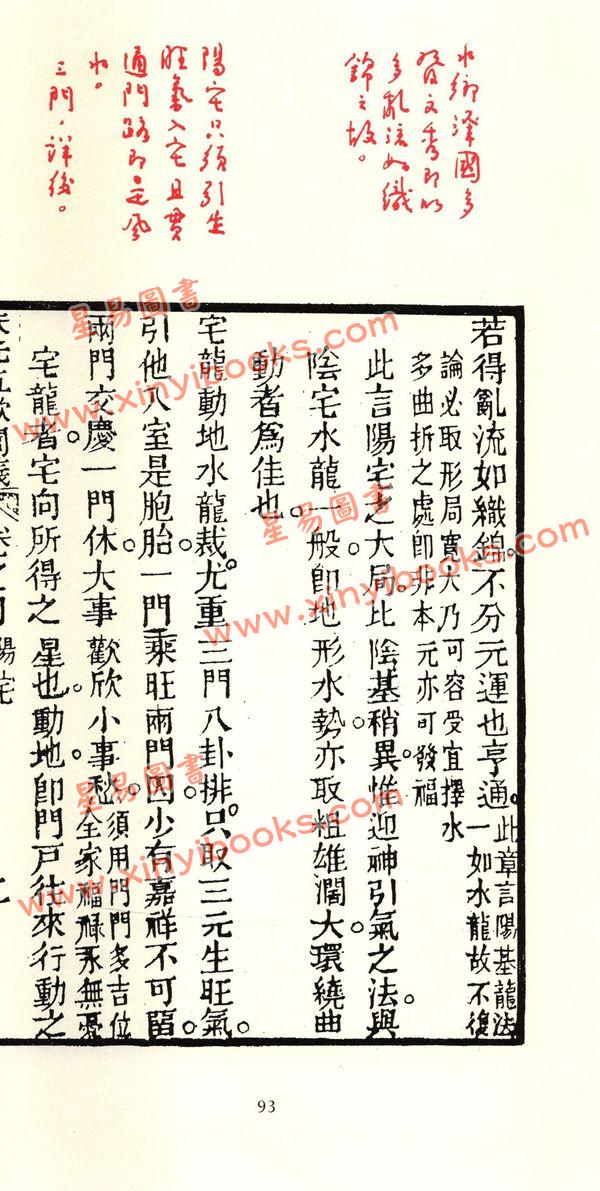 水鄉澤國多
發文秀即以
多亂流如織
錦之故。
陽宅只須引生
旺氣入宅且貫
通門路即是風
水。
三門，詳後。
若得亂流如織錦。不分元運也亨通。此章言陽基龍法
一如水龍故不復
論必取形局寬大乃可容受宜擇水
多曲折之處即非本元亦可發福
此言陽宅之大局。比陰基稍異。惟迎神引氣之法。與
陰宅水龍一般。即地形水勢。亦取粗雄濶大。環繞曲
動者為佳也。
宅龍動地水龍裁。尤重三門八卦排。只取三元生旺氣。
引他入室是胞胎。一門乘旺兩門囚。少有嘉祥不可留。
兩門交慶一門休。大事歡欣小事愁。須用門門多吉位
全家福祿永無憂
宅龍者。宅向所得之星也。動地。即門戶往來行動之
陽宅
93
星易圖書
www.xinyibooks.com
星易圖書
www.xinyibooks.com
星易圖書
www.xinyibooks.com